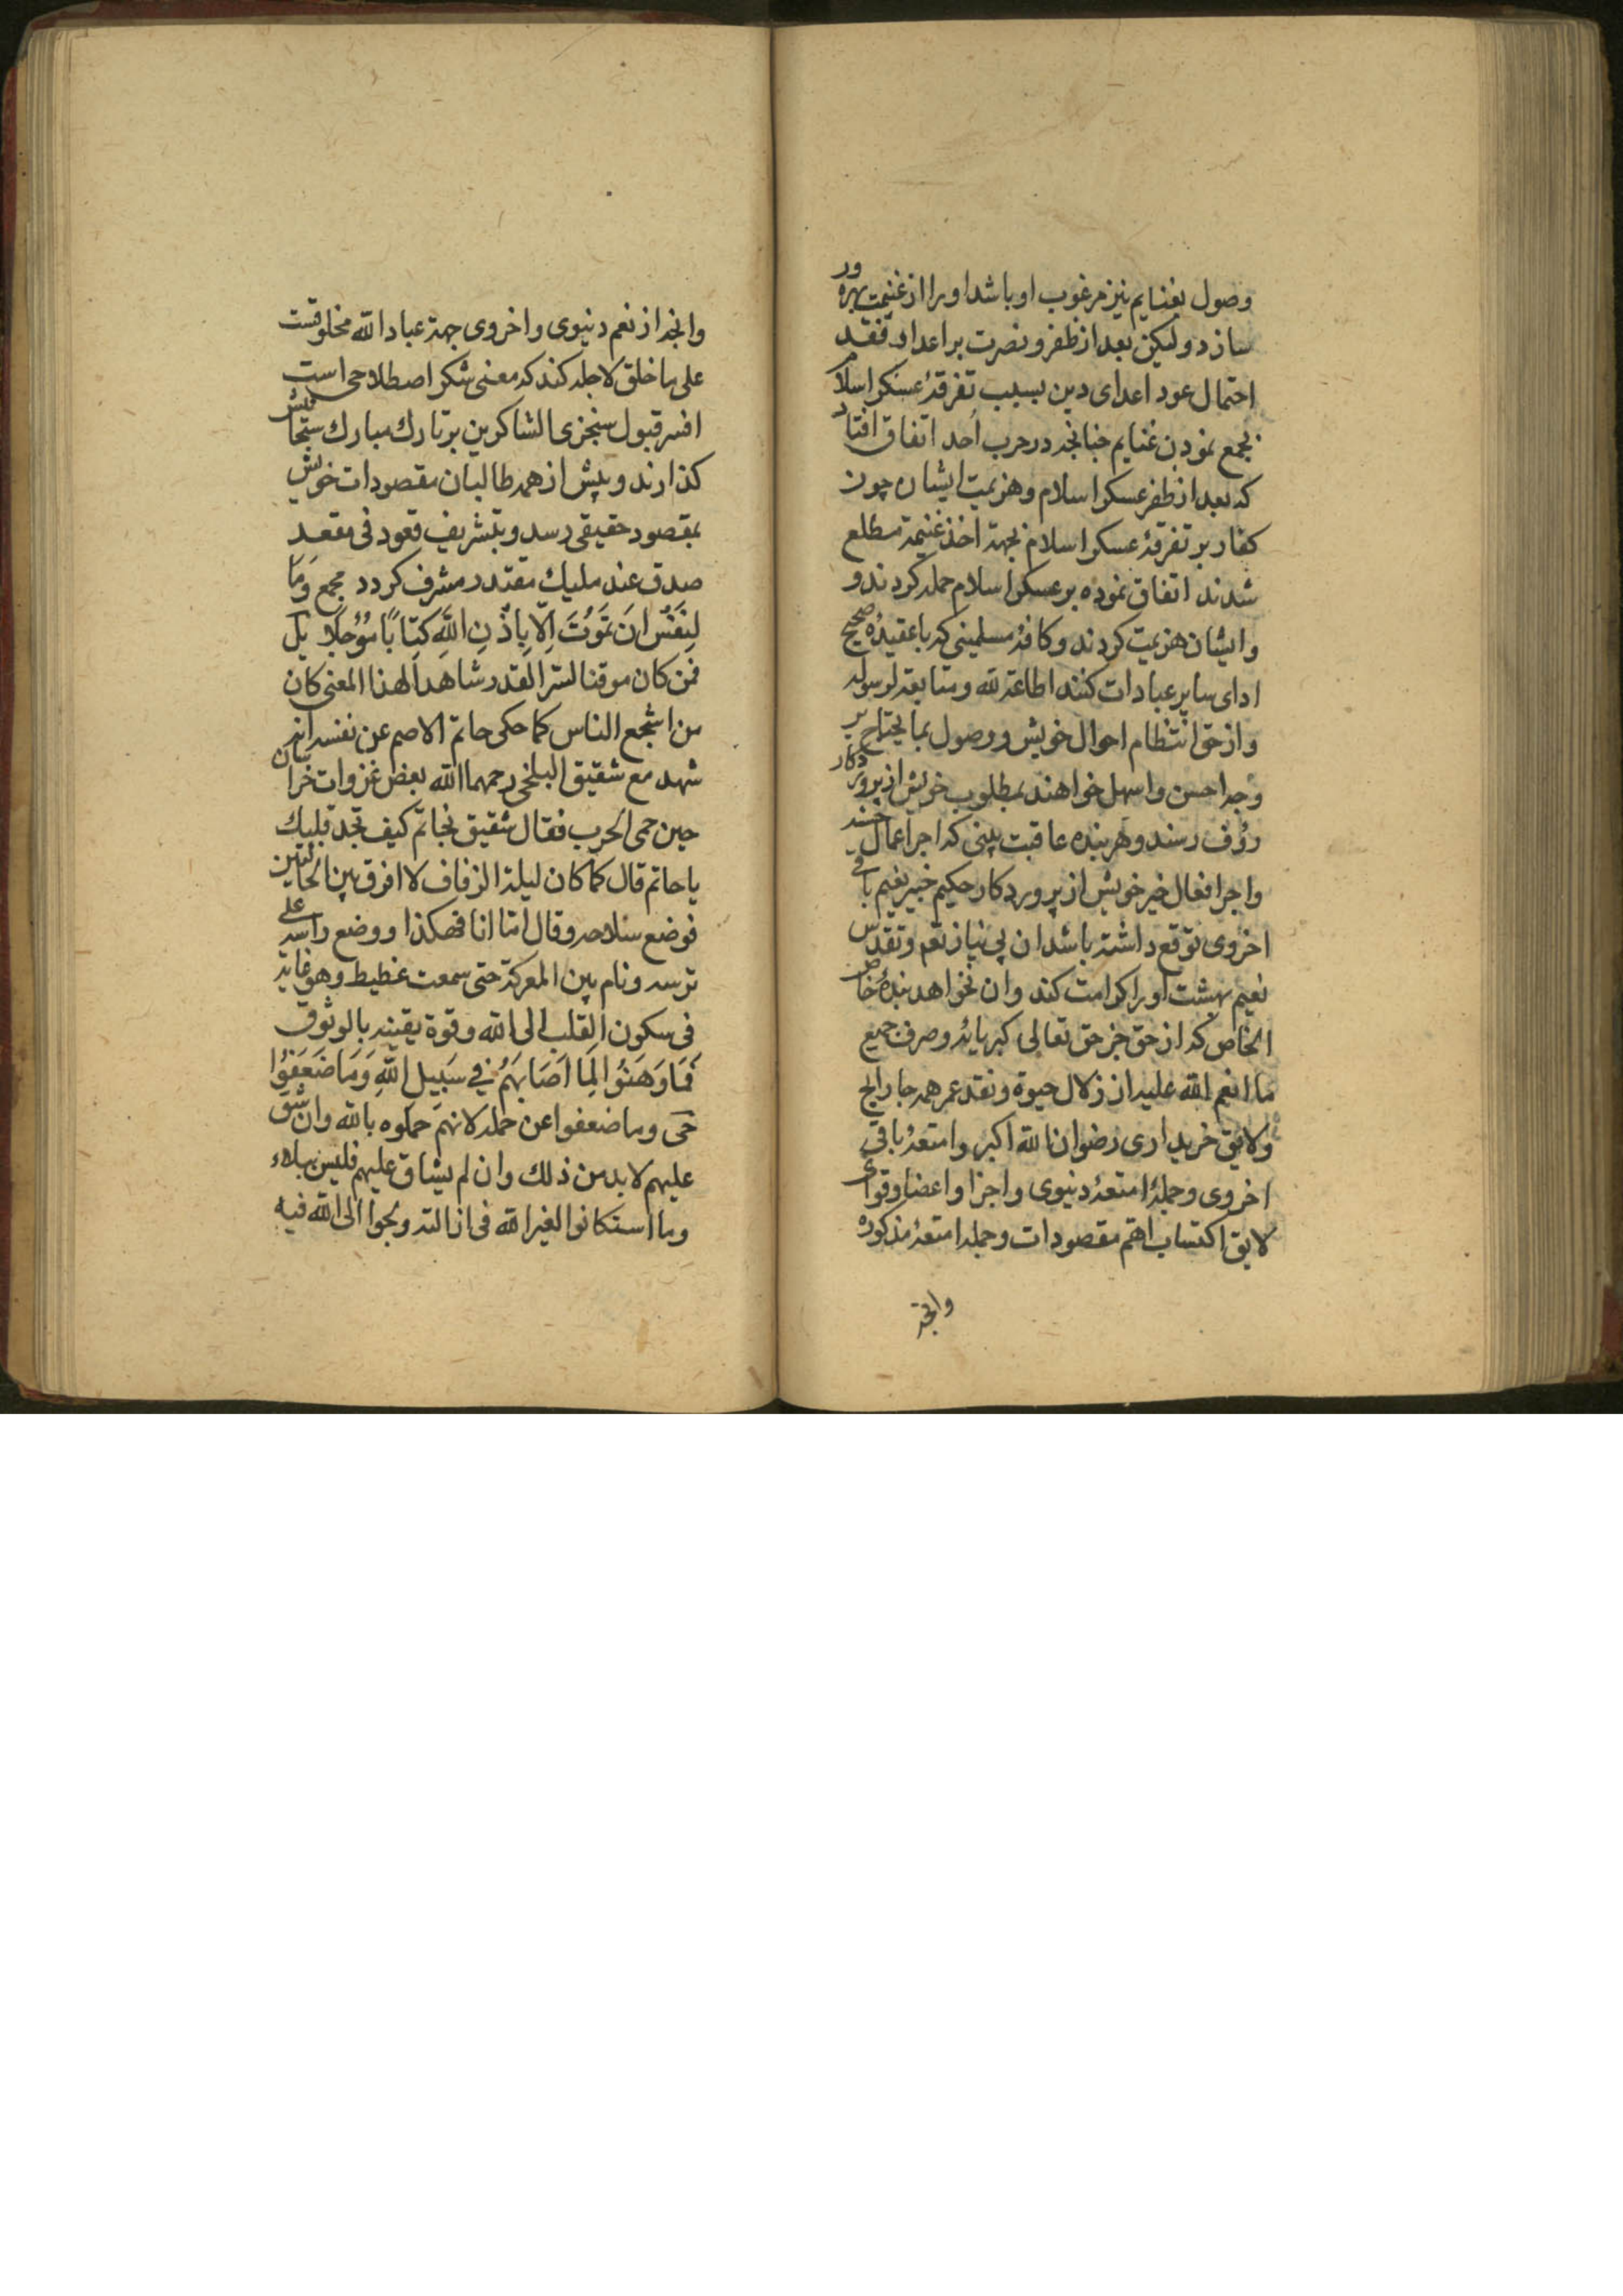 وصول بغنایم نیز مرغوب او باشد او را از غنیمت بهره ور
سازد ولیکن بعد از ظفر و نصرت بر اعدا
احتمال عود اعدای دین بسبب تفرقهٔ عسکر اسلام
بجمع نمودن غنایم چنانچه در حرب اُحد اتفاق افتاد
که بعد از ظفر عسکر اسلام و هزیمت ایشان چون
کفار بر تفرقهٔ عسکر اسلام بجهة اخذ غنیمة مطلع
شدند اتفاق نموده بر عسکر اسلام حمله کردند و
وایشان هزیمت کردند و کافهٔ مسلمینی که با عقیدهٔ صحیح
ادای سایر عبادات کنند اطاعة لله و متابعة لرسوله
و از حق انتظام احوال خویش و وصول بما یحتاج بر
وجه احسن و اسهل خواهند بمطلوب خویش از پروردکار
رؤف رسند و هر بندهٔ عاقبت بینی که اجر اعمال حسنه
و اجر افعال خیر خویش از پروردکار حکیم خبیر نعیم باقی
اخروی توقع داشته باشد ان بی نیاز تعم و تقدس
نعیم بهشت او را کرامت کند و ان نخواهد بندهٔ خاص
الخاص که از حق جز حق تعالی کبریائه و صرف جمیع
ما انعم الله علیه از زلال حیوة و نقد عمر همه جا رایج
و لایق خریداری رضوان الله اکبر و امتعهٔ باقی
اخروی و جملهٔ امتعهٔ دنیوی و اجزا و اعضا و قوای
لایق اکتساب اهم مقصودات و جمله امتعهٔ مذکوره
وانچه
وانچه از نعم دنیوی و اخروی جهة عباد الله مخلوقست
علی ما خلق لاجله کند که معنی شکر اصطلاحی است
افسر قبول سنجزی الشاکرین بر تارک مبارک
کذارند و پیش از همه طالبان مقصودات خویش
بمقصود حقیقی رسد و بتشریف قعود فی مقعد
صدق عند ملیك مقتدر مشرف کردد مجمع وَمَا
لِنَفْسٍ اَنْ تَمُوتَ اِلَّا بِاِذْنِ اللّٰهِ كِتَابًا مُؤَجَّلًا
فمن كان موقنا لسر القدر شاهداً لهذا المعنى كان
من اشجع الناس كما حكى حاتم الاصم عن نفسه انه
شهد مع شقيق البلخى رحمهما الله بعض غزوات خراسان
حين حمى الحرب فقال شقيق لحاتم كيف تجد قلبك
يا حاتم قال كما كان ليلة الزفاف لا افرق بين الحالتين
فوضع سلاحه وقال امّا انا فهكذا ووضع راسه على
ترسه ونام بين المعركة حتى سمعت غطيطه وهو غاية
فى سكون القلب الى الله وقوة يقينه بالوثوق
فَمَا وَهَنُوا لِمَا اَصَابَهُمْ فِي سَبِيلِ اللّٰهِ وَمَا ضَعُفُوا
حى وما ضعفوا عن حمله لانهم حملوه بالله وان شق
عليهم لا بد من ذلك وان لم يشاق عليهم فليس ببلاء
وما استكانوا لغير الله فى ازالته ولجوا الى الله فيه